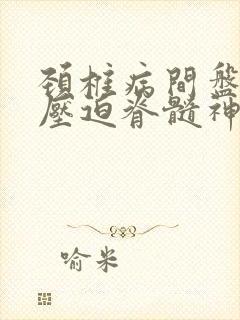 頚椎病間盤
壓迫脊髓神
喻米